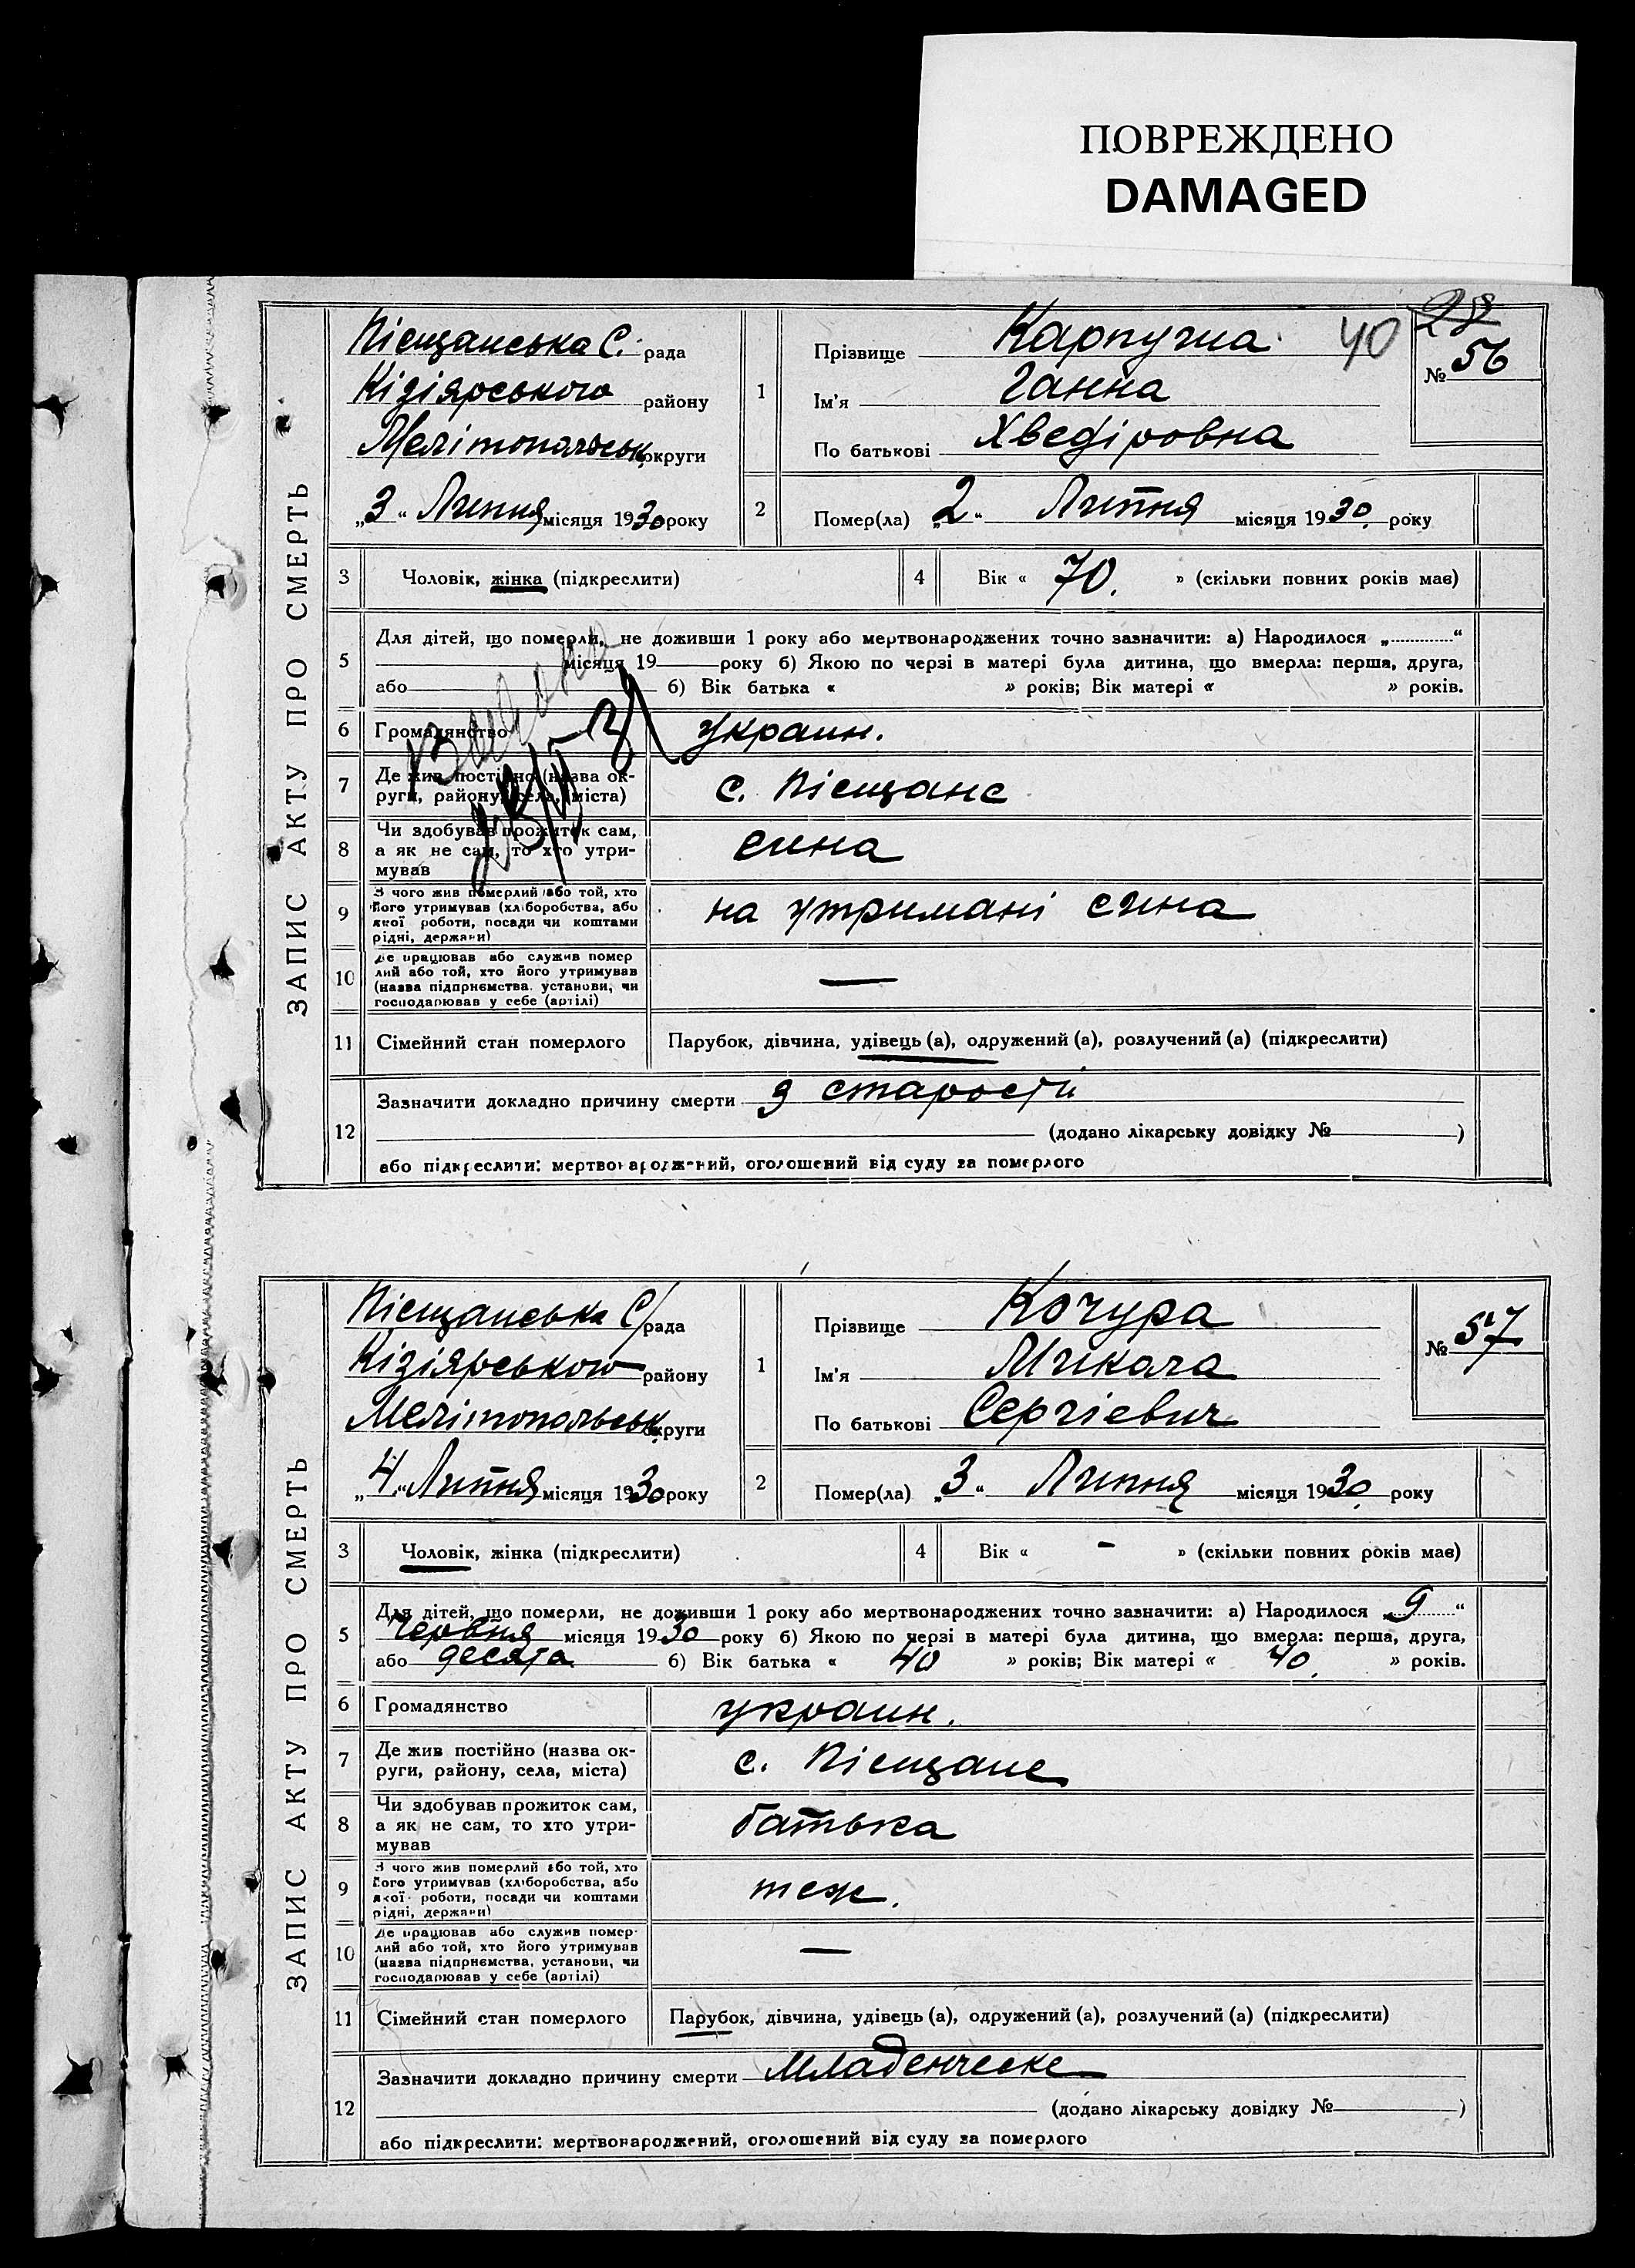 ПОВРЕЖДЕНО
DAMAGED
ЗАПИС АКТУ ПРО СМЕРТЬ
Пісщанська С. рада
Кізіярського району
Мелітопольськ. округи
„3“ Липня місяця 1930 року
1
Прізвище Карпучна
Ім'я Ганна
По батькові Хведіровна
40
28
№ 56
2
Помер(ла) „2“ Липня місяця 1930 року
3
Чоловік, жінка (підкреслити)
4
Вік « 70. » (скільки повних років має)
5
Для дітей, що померли, не доживши 1 року або мертвонароджених точно зазначити: а) Народилося „ “
місяця 19 року б) Якою по черзі в матері була дитина, що вмерла: перша, друга,
або б) Вік батька « » років; Вік матері « » років.
6
Громадянство украин.
7
Де жив постійно (назва ок-
руги, району, села, міста)
с. Пісщане
8
Чи здобував прожиток сам,
а як не сам, то хто утри-
мував
сина
9
З чого жив померлий або той, хто
його утримував (хліборобства, або
якої роботи, посади чи коштами
рідні, держави)
на утримані сина
10
Де працював або служив помер
лий або той, хто його утримував
(назва підприємства, установи, чи
господарював у себе (артілі)
—
11
Сімейний стан померлого
Парубок, дівчина, удівець (а), одружений (а), розлучений (а) (підкреслити)
12
Зазначити докладно причину смерти з старости
(додано лікарську довідку № )
або підкреслити: мертвонароджений, оголошений від суду за померлого
ЗАПИС АКТУ ПРО СМЕРТЬ
Пісщанська С/рада
Кізіярського району
Мелітопольськ. округи
„4“ Липня місяця 1930 року
1
Прізвище Кочура
Ім'я Микола
По батькові Сергієвич
№ 57
2
Помер(ла) „3“ Липня місяця 1930 року
3
Чоловік, жінка (підкреслити)
4
Вік « - » (скільки повних років має)
5
Для дітей, що померли, не доживши 1 року або мертвонароджених точно зазначити: а) Народилося „9“
Червня місяця 1930 року б) Якою по черзі в матері була дитина, що вмерла: перша, друга,
або десята б) Вік батька « 40 » років; Вік матері « 40. » років.
6
Громадянство украин.
7
Де жив постійно (назва ок-
руги, району, села, міста)
с. Пісщане
8
Чи здобував прожиток сам,
а як не сам, то хто утри-
мував
батька
9
З чого жив померлий або той, хто
його утримував (хліборобства, або
якої роботи, посади чи коштами
рідні, держави)
теж.
10
Де працював або служив помер-
лий або той, хто його утримував
(назва підприємства, установи, чи
господарював у себе (артілі)
—
11
Сімейний стан померлого
Парубок, дівчина, удівець (а), одружений (а), розлучений (а) (підкреслити)
12
Зазначити докладно причину смерти Младенческе
(додано лікарську довідку № )
або підкреслити: мертвонароджений, оголошений від суду за померлого